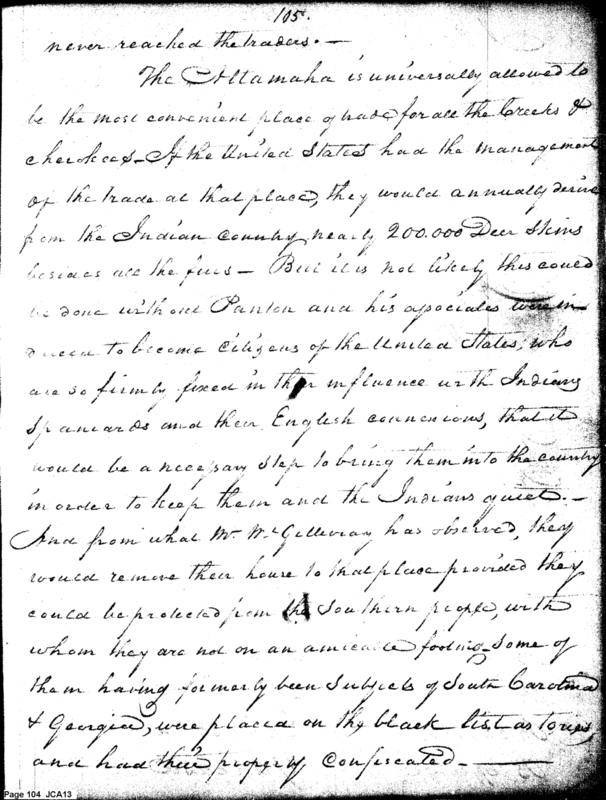 105.
never reached the traders. —
The Altamaha is universally allowed to
be the most convenient place of trade for all the Creeks &
cherokees – If the United States had the management
of the trade at that place, they would annually derive
from the Indian country, nearly 200.000 Deer Skins
besides all the furs – But it is not likely this could
be done without Panton and his associates were in-
duced to become Citizens of the United States; who
are so firmly fixed in their influence with Indians
Spaniards and their English connexions, that it
would be a necessary step to bring them into the country
in order to keep them and the Indians quiet. –
And from what Mr. McGillivray has observed, they
would remove their house to that place provided they
could be protected from the Southern people, with
whom they are not on an amicable footing – Some of
them having formerly been Subjects of South Carolina
& Georgia, were placed on the black list as tories,
and had their property confiscated. ——
Page 104 JCA13